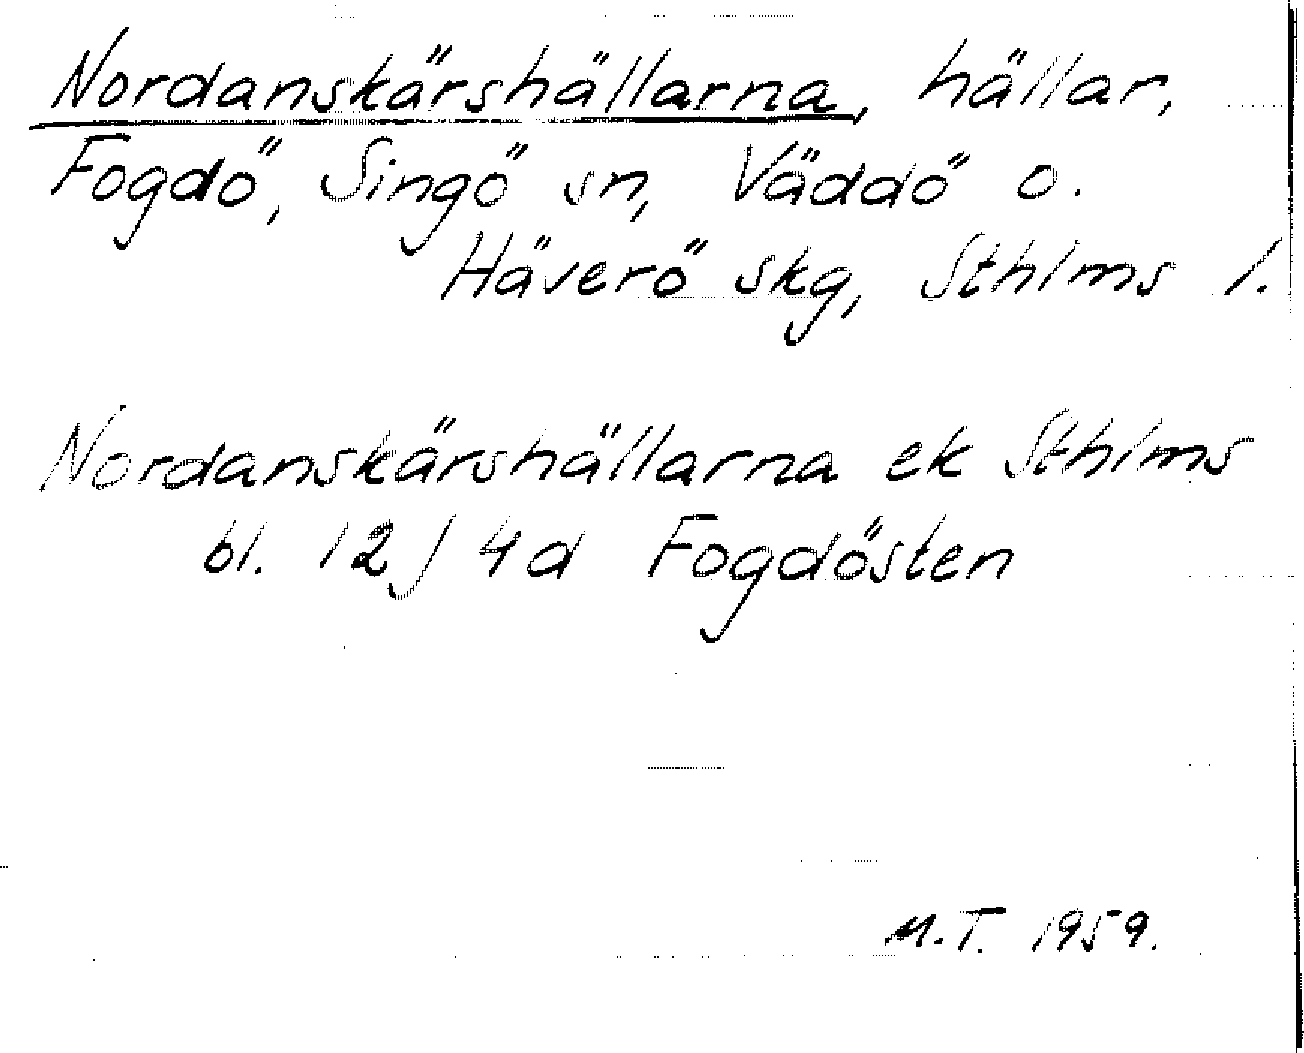 Nordanskärshällarna, hällar,
Fogdö, Singö sn, Väddö o.
Häverö skg, Sthlms l.
Nordanskärshällarna ek Sthlms
bl. 12J 4d Fogdösten
M.T. 1959.